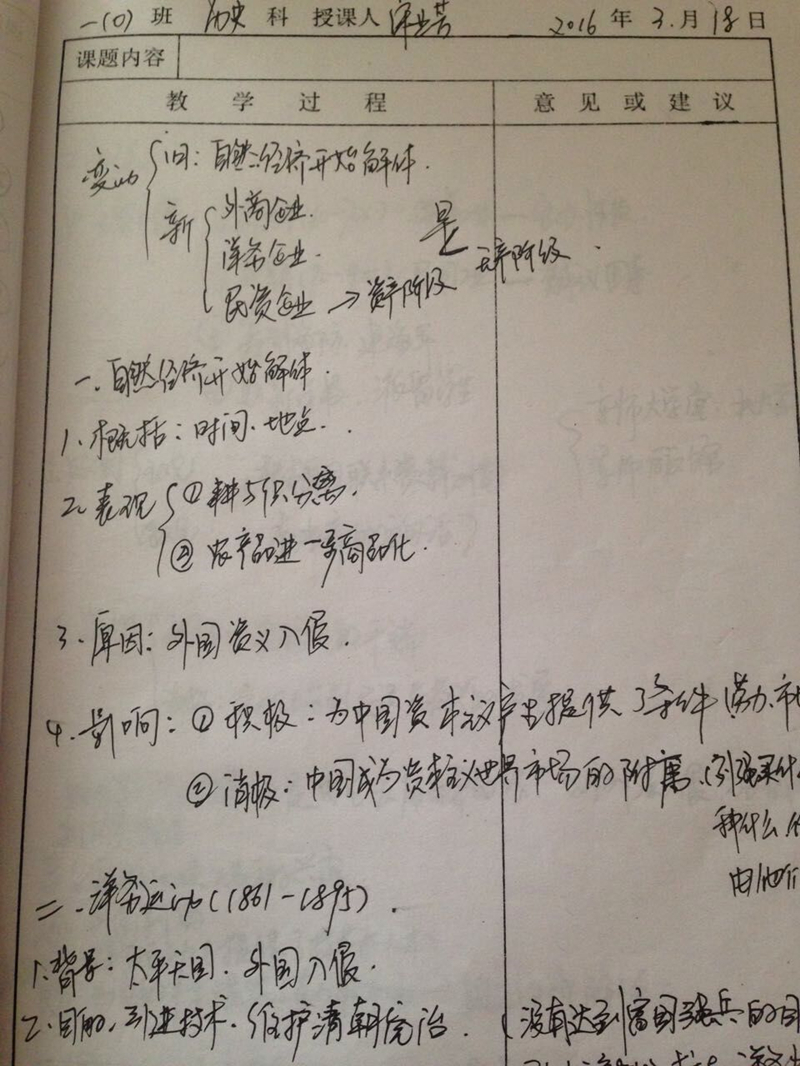 一(0)班 历史 科 授课人 2016 年 3.月 18 日
课题内容
教学过程 意见或建议
变动 旧：自然经济开始解体.
新 外商企业.
洋务企业. 是
民资企业→资产阶级 无产阶级.
一.自然经济开始解体.
1.概括：时间、地点.
2.表现 ①耕与织分离.
②农产品进一步商品化.
3.原因：外国资义入侵.
4.影响：①积极：为中国资本义产生提供了条件 劳力.市
②消极：中国成为资本主义世界市场的附庸.
种什么.
由他们
二.洋务运动(1861-1895).
1.背景：太平天国.外国入侵.
2.目的.引进技术.维护清朝统治. (没有达到富国强兵的目